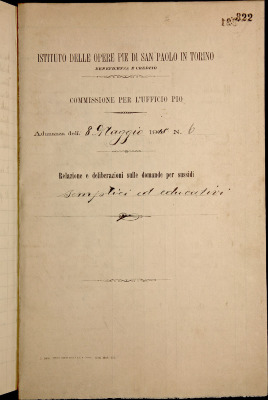 822
ISTITUTO DELLE OPERE PIE DI SAN PAOLO IN TORINO
BENEFICENZA E CREDITO
COMMISSIONE PER L'UFFICIO PIO
Adunanza dell' 8 Maggio N. 6
Relazione e deliberazioni sulle domande per sussidi
semplici ed educativi